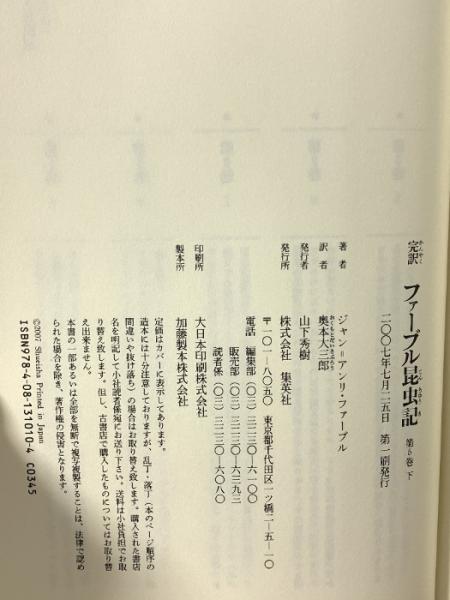 完訳 ファーブル昆虫記 第5巻 下
かんやく
こんちゅうき
二〇〇七年七月二五日 第一刷発行
著者 ジャン=アンリ・ファーブル
訳者 奥本大三郎
おくもとだいさぶろう
発行者 山下秀樹
発行所 株式会社 集英社
〒一〇一-八〇五〇 東京都千代田区一ツ橋二-五-一〇
電話 編集部(〇三)三二三〇-六一〇〇
販売部(〇三)三二三〇-六三九三
読者係(〇三)三二三〇-六〇八〇
印刷所 大日本印刷株式会社
製本所 加藤製本株式会社
定価はカバーに表示してあります。
造本には十分注意しておりますが、乱丁・落丁(本のページ順序の
間違いや抜け落ち)の場合はお取り替え致します。購入された書店
名を明記して小社読者係宛にお送り下さい。送料は小社負担でお取
り替え致します。但し、古書店で購入したものについてはお取り替
え出来ません。
本書の一部あるいは全部を無断で複写複製することは、法律で認め
られた場合を除き、著作権の侵害となります。
©2007 Shueisha Printed in Japan
ISBN978-4-08-131010-4 C0345